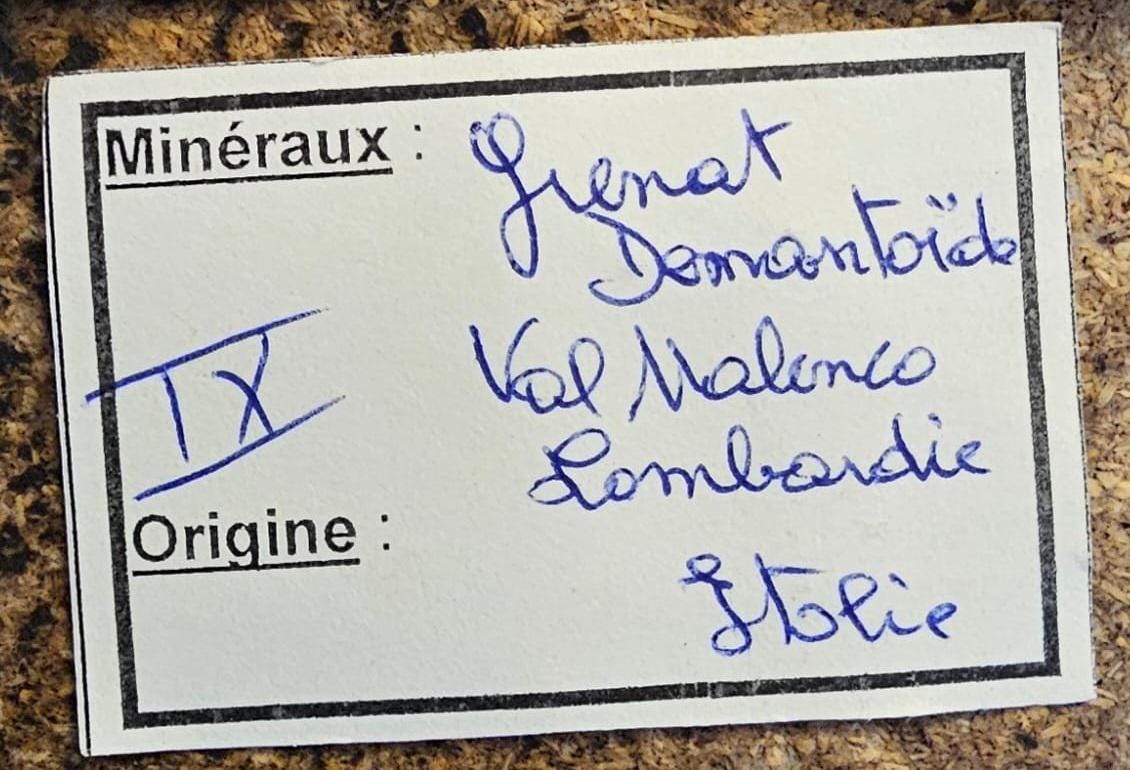 Minéraux : Grenat
Demantoïde
Val Malenco
IX
Lombardie
Origine :
Italie